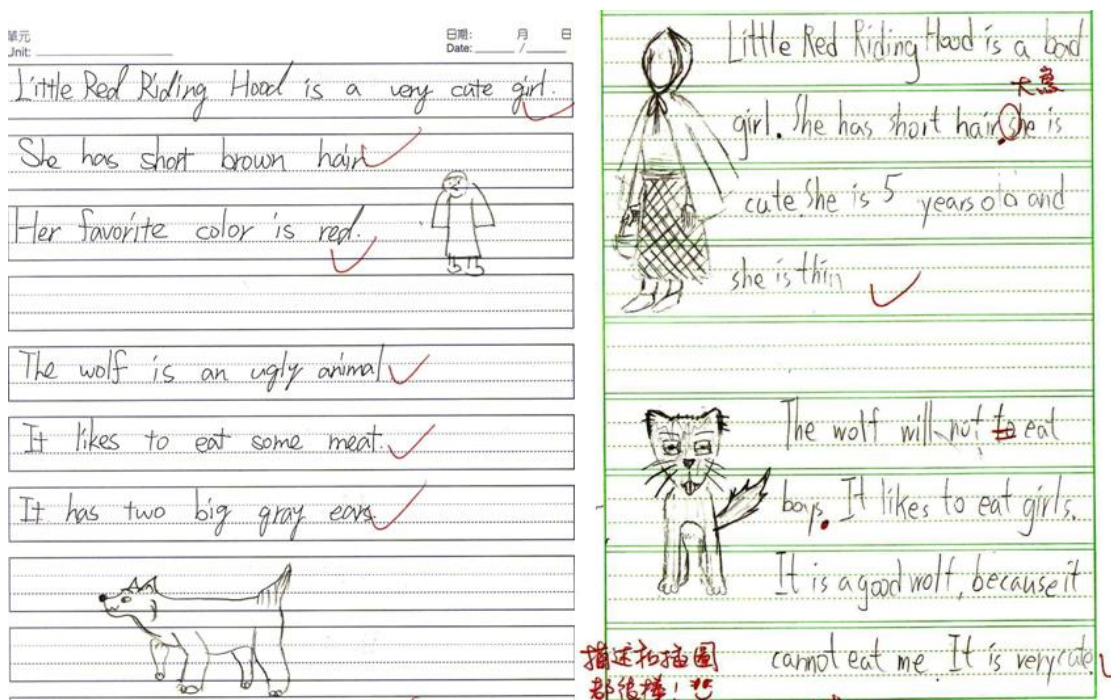 單元
Unit:
日期: 月 日
Date: /
Little Red Riding Hood is a very cute girl.
She has short brown hair
Her favorite color is red.
The wolf is an ugly animal
It likes to eat some meat.
It has two big gray ears.
Little Red Riding Hood is a bad
大寫
girl. She has short hair. she is
cute. She is 5 years old and
she is thin
The wolf will not to eat
boys. It likes to eat girls.
It is a good wolf, because it
cannot eat me. It is very cute
描述和插圖
都很棒!